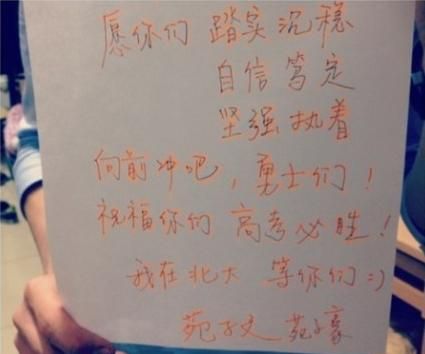 愿你们 踏实沉稳
自信笃定
坚强执着
向前冲吧，勇士们！
祝福你们 高考必胜！
我在北大 等你们:)
苑子文 苑子豪